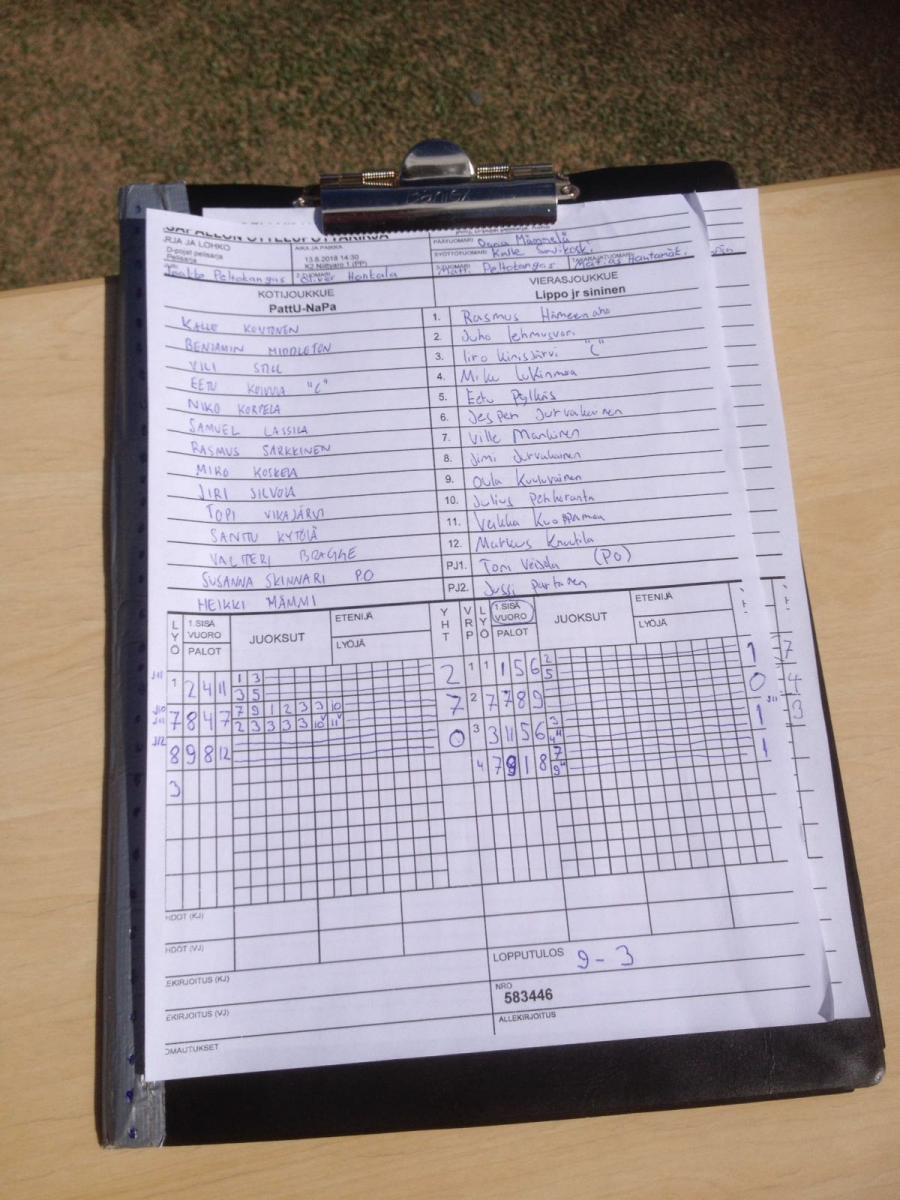 RJA JA LOHKO
D-pojat pelisarja
Pelisarja
AIKA JA PAIKKA
13.8.2018 14:30
K2 Niittyaro 1 (PP)
PÄÄTUOMARI
SYÖTTÖTUOMARI
Peltokangas
Oliver Honkala
Peltokangas
KOTIJOUKKUE
PattU-NaPa
VIERASJOUKKUE
Lippo jr sininen
KALLE KOVTONEN 1. Rasmus Hämeenaho
BENJAMIN MIDDLETON 2. Juho Lehmusvuori
VILI STILL 3. Iiro Kinisjärvi "C"
EETU KOIVULA "C" 4. Miku Lukinmaa
NIKO KORPELA 5. Eetu Pylkäs
SAMUEL LASSILA 6. Jesperi Jurvakainen
RASMUS SARKKINEN 7. Ville Manninen
MIRO KOSKELA 8. Jimi Jurvakainen
JIRI SILVOLA 9. Oula Kuuluvainen
TOPI VIKAJÄRVI 10. Julius Penkeranta
SANTTU KYTÖLÄ 11. Veikka Kuoppamaa
VALTTERI BRAGGE 12. Markus Knuutila
SUSANNA SKINNARI PO PJ1. Tom (PO)
HEIKKI MÄMMI PJ2. Jussi Partanen
LYÖ 1.SISÄ VUORO PALOT JUOKSUT ETENIJÄ LYÖJÄ YHT VRP LYÖ 1.SISÄ VUORO PALOT JUOKSUT ETENIJÄ LYÖJÄ
1 2 4 11 1 3 2 1 1 1 5 6 2 1 7
3 5 5
7 8 4 7 7 9 1 2 3 3 10 7 2 7 7 8 9 0 4
2 3 3 3 3 10 11
8 9 8 12 0 3 3 11 5 6 3 1 3
4
3 4 7 9 1 8 7 1
9
HDOT (KJ)
HDOT (VJ)
EKIRJOITUS (KJ)
EKIRJOITUS (VJ)
OMAUTUKSET
LOPPUTULOS 9-3
NRO
583446
ALLEKIRJOITUS